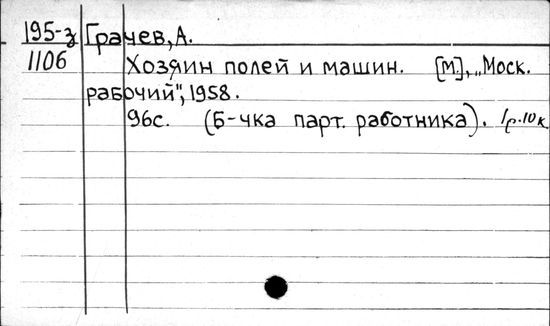 195-з Грачев, А.
1106 Хозяин полей и машин. [М.], „Моск.
рабочий", 1958.
96с. (Б-чка парт. работника). 1р.10к